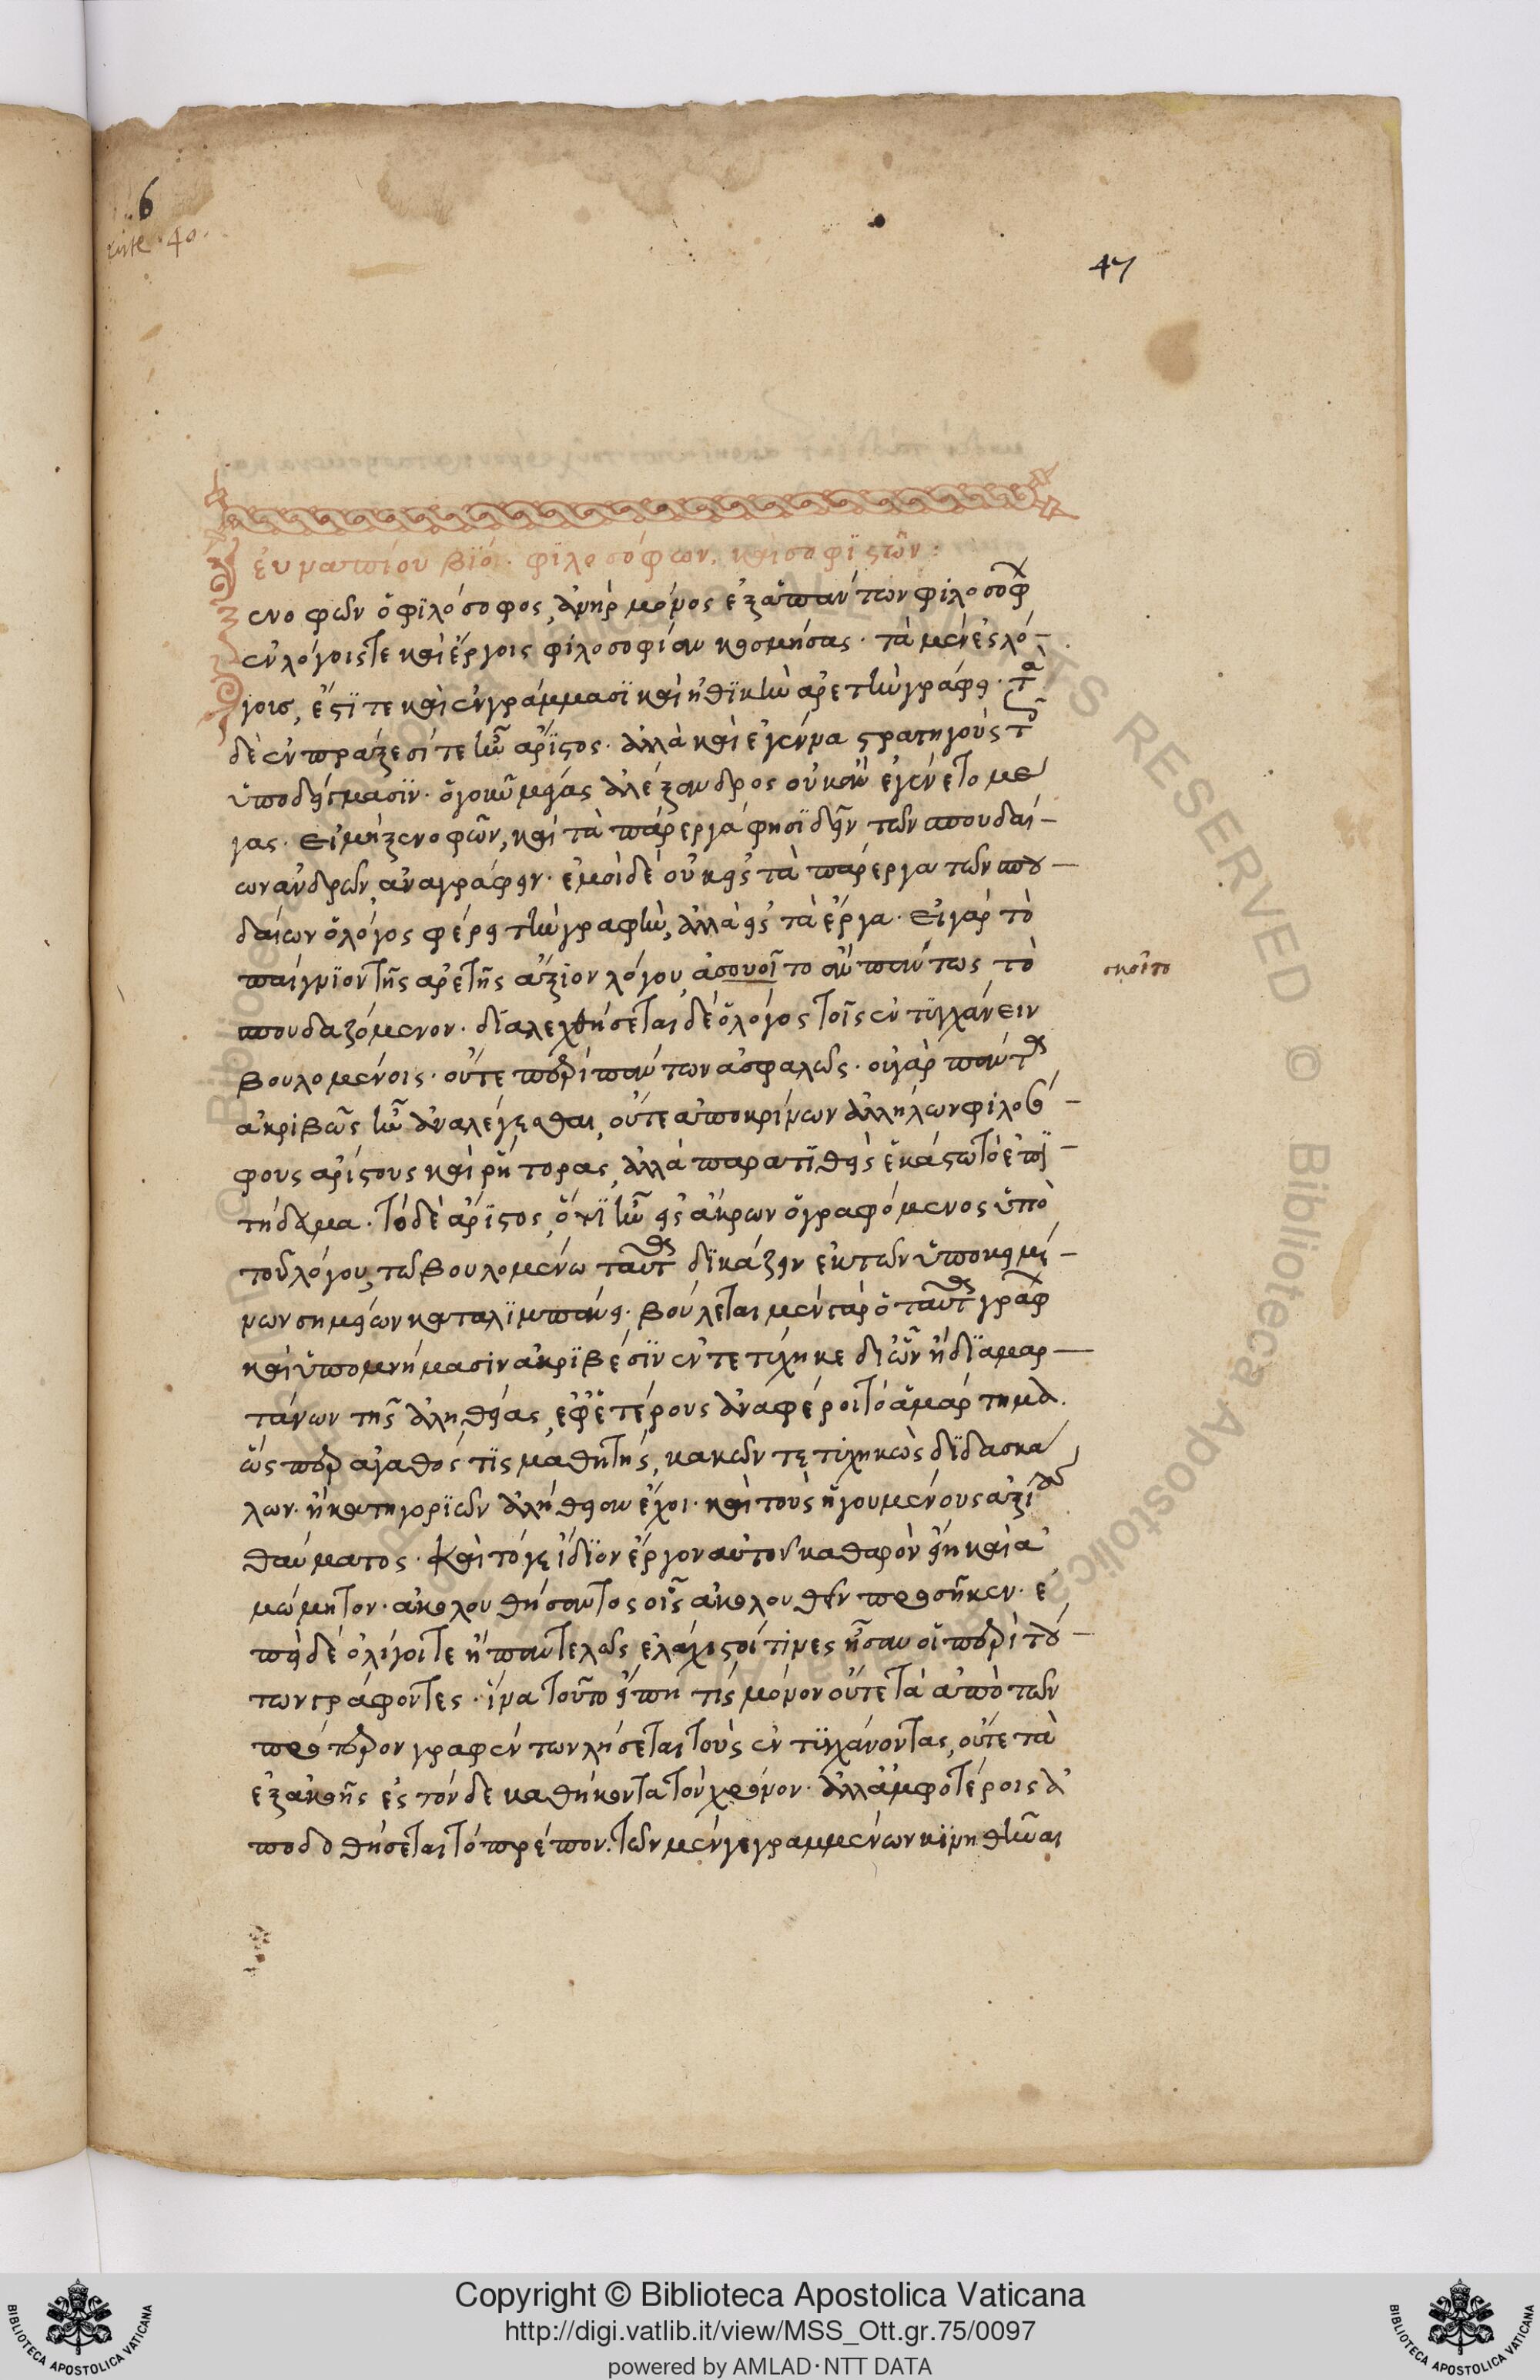 6
47
ἐυναπίου βϊόι· φϊλοσόφων, καὶ σοφϊστῶν:
Ξενοφῶν ὁ φϊλόσοφος, ἀνὴρ μόνος ἐξ ἁπάντων φιλοσόφ
ἐν λόγοις τε καὶ ἔργοις φιλοσοφίαν κοσμήσας· τὰ μὲν ἐς λό-
γοισ, ἔστϊ τε καὶ ἐν γράμμασϊ καὶ ἠθϊκὴν ἀρετὴν γράφει· τὰ
δὲ ἐν πράξεσί τε ἦν ἄρϊστος· ἀλλὰ καὶ ἐγέννα στρατηγοὺς τ
ὑποδείγμασϊν· ὁ γοῦν μέγας ἀλέξανδρος οὐκ ἂν ἐγένετο μέ
γας· εἰ μὴ ξενοφῶν, καὶ τὰ πάρεργά φησϊ δεῖν τῶν σπουδαί-
ων ἀνδρῶν ἀναγράφειν· ἐμοὶ δὲ οὐκ εἰς τὰ πάρεργα τῶν σπου-
δαίων ὁ λόγος φέρει τὴν γραφὴν, ἀλλὰ εἰς τὰ ἔργα· εἰ γὰρ τὸ
παίγνϊον τῆς ἀρετῆς ἄξϊον λόγου, ἀσουοῖτο ἂν πάντως τὸ
σκοῖτο
σπουδαζόμενον· δϊαλεχθήσεται δὲ ὁ λόγος τοῖς ἐντϋγχάνειν
βουλομένοις· οὔτε περὶ πάντων ἀσφαλῶς· οὐ γὰρ πάντα
ἀκριβῶς ἦν ἀναλέγεσθαι, οὔτε ἀποκρίνων ἀλλήλων φιλοσό-
φους ἀρίστους καὶ ῥήτορας, ἀλλὰ παρατϊθεὶς ἑκάστω τὸ ἐπϊ-
τήδευμα· τὸ δὲ ἄρϊστος, ὅτϊ ἦν εἰς ἄκρων ὁ γραφόμενος ὑπὸ
τοῦ λόγου, τῶ βουλομένω ταῦτα δϊκάζειν ἐκ τῶν ὑποκειμέ-
νων σημείων καταλϊμπάνει· βούλεται μὲν γὰρ ὁ ταῦτα γράφ
καὶ ὑπομνήμασιν ἀκρϊβέσϊν ἐντετύχηκε δι᾽ ὧν ἢ δϊαμαρ-
τάνων τῆς ἀληθείας, ἐφ᾽ ἑτέρους ἀναφέροι τὸ ἁμάρτημα.
ὥσπερ ἀγαθός τϊς μαθητὴς, κακῶν τετυχηκὼς δϊδασκά
λων· ἢ κατηγορϊῶν ἀλήθειαν ἔχοι· καὶ τοὺς ἡγουμένους ἀξίους
θαύματος· καὶ τό γε ἴδϊον ἔργον αὐτοῦ καθαρὸν εἴη καὶ ἀ
μώμητον· ἀκολουθήσαντος οἷς ἀκολουθεῖν προσῆκεν· ἐ
πεὶ δὲ ὀλίγοι τε ἢ παντελῶς ἐλάχιστοί τινες ἦσαν οἱ περὶ τού-
των γράφοντες· ἵνα τοῦτο εἴπη τίς μόνον οὔτε τὰ ἀπὸ τῶν
πρότερον γραφέντων λήσεται τοὺς ἐντϋγχάνοντας, οὔτε τὰ
ἐξ ἀκοῆς ἐς τόνδε καθήκοντα τὸν χρόνον· ἀλλ᾽ ἀμφοτέροις ἀ
ποδοθήσεται τὸ πρέπον· τῶν μὲν γεγραμμένων κϊνηθῆναι
Copyright © Biblioteca Apostolica Vaticana
http://digi.vatlib.it/view/MSS_Ott.gr.75/0097
powered by AMLAD·NTT DATA
BIBLIOTECA APOSTOLICA VATICANA
BIBLIOTECA APOSTOLICA VATICANA